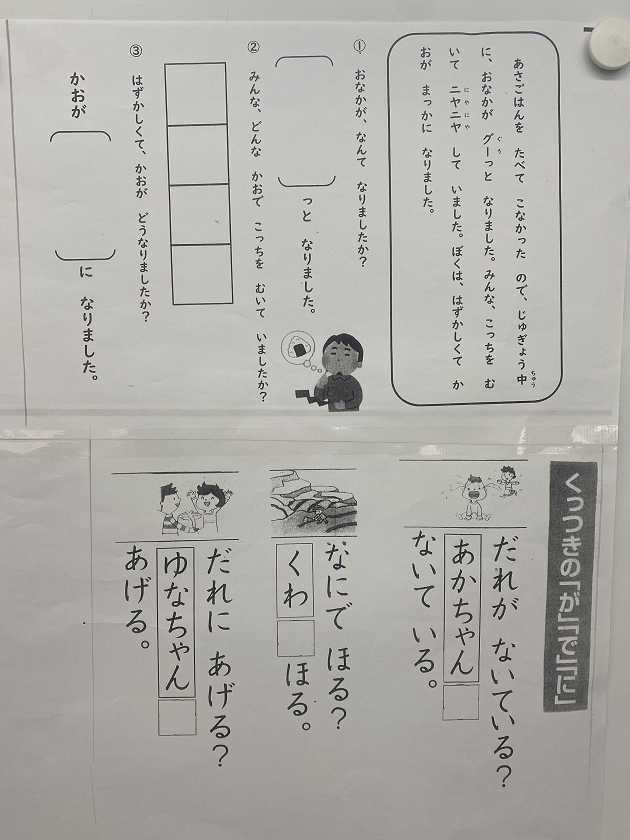 あさごはんを　たべて　こなかった　ので、じゅぎょう中
ちゅう
に、おなかが　グーっと　なりました。みんな、こっちを　む
ぐう
いて　ニヤニヤ　して　いました。ぼくは、はずかしくて　か
にやにや
おが　まっかに　なりました。
① おなかが、なんて　なりましたか？
っと　なりました。
② みんな、どんな　かおで　こっちを　むいて　いましたか？
③ はずかしくて、かおが　どうなりましたか？
かおが
に　なりました。
くっつきの「が」「で」「に」
だれが　ないている？
あかちゃん
ないて　いる。
なにで　ほる？
くわ
ほる。
だれに　あげる？
ゆなちゃん
あげる。